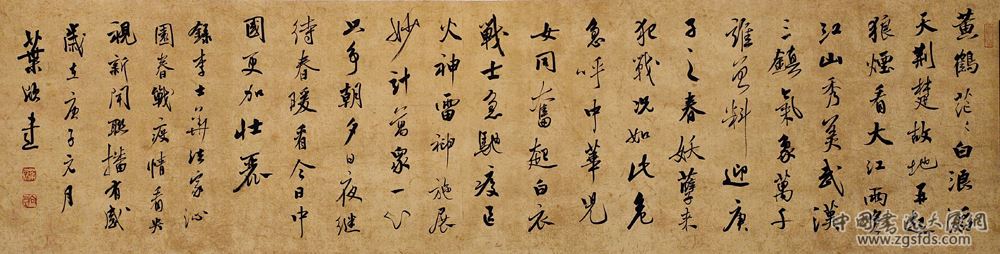 黃鶴茫〻白浪滔
天荆楚故地再起
狼煙看大江兩岸
江山秀美武漢
三鎮氣象萬千
誰曾料迎庚
子之春妖孽来
犯戰况如此危
急呼中華兒
女同奮起白衣
戰士急馳疫区
火神雷神施展
妙計萬衆一心
只争朝夕日夜继
待春暖看今日中
國更加壯麗
錄李士法家沁
園春戰疫情看央
視新聞聯播有感
歲在庚子元月
葉建
中国书法大展网
www.zgsfds.com